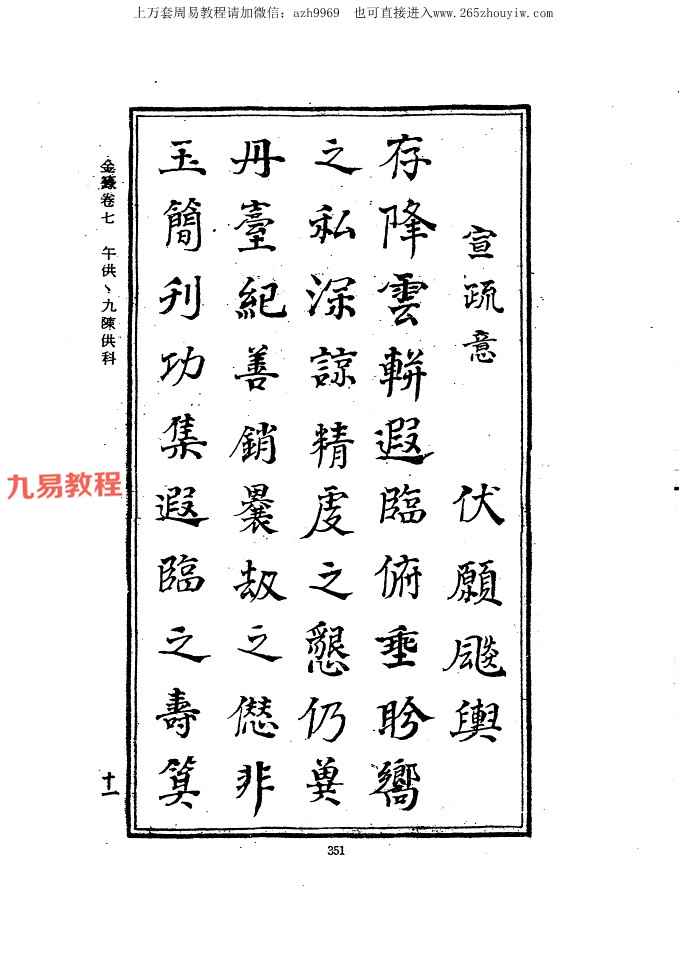 上万套周易教程请加微信：azh9969 也可直接进入www.265zhouyiw.com
宣疏意 伏願飈輿
存降雲輧遐臨俯垂盻嚮
之私深諒精虔之懇仍兾
丹臺紀善銷曩劫之僁非
玉簡刋功集遐臨之壽筭
金籙卷七 午供、九陳供科
十一
九易教程
351